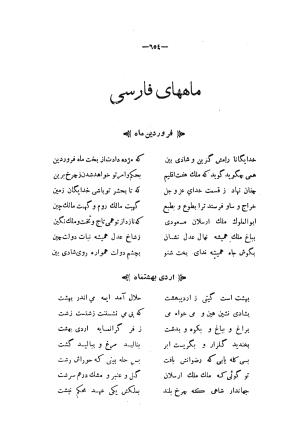 —۶۵۴—
ماههای فارسی
فروردین ماه
خدایگانا رامش گزین و شادی بین که مژده دادت از بخت ماه فروردین
همی چگوید گوید که ملک هفت اقلیم بحکم و امر تو خواهد شدن ز چرخ برین
چنان نهاد ز قسمت خدای عز و جل که تا بحشر تو باشی خدایگان زمین
خراج و ساو فرستد ترا بطوع و بطبع گهیت مالک روم و گهیت مالک چین
ابوالملوک ملک ارسلان مسعودی که نازد از تو همی تاج و تخت و ملک و نگین
بباغ ملک همیشه نهال عدل نشان ز شاخ عدل همیشه نبات دولت چین
بگوش جاه همیشه ندای بخت شنو بچشم دولت همواره روی شادی بین
اردی بهشتماه
بهشت است گیتی ز اردیبهشت حلال آمد ایمه می اندر بهشت
بشادی نشین هین و می خواه می که بی می نشستنت زشتست زشت
براغ و بباغ و بکوه و بدشت ز فر گرانمایه اردی بهشت
بخندید گلزار و بگریست ابر بنالید مرغ و ببالید کشت
بسی کله یابی که رضوانش بافت بس حله بینی که حوراش رشت
تو گوئی که ملک ملک ارسلان گل و عنبر و مشک درهم سرشت
جهاندار شاهی که چرخ بلند بملکش یکی عهد محکم نبشت